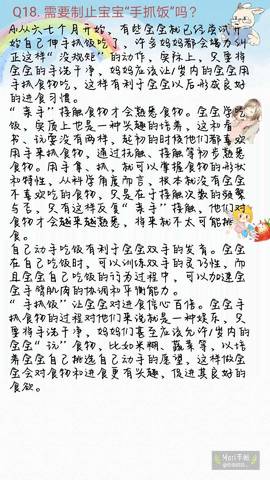 Q18.需要制止宝宝“手抓饭”吗?
A:从六七个月开始,有些宝宝就已经尝试开
始自己伸手抓饭吃了,许多妈妈都会竭力纠
正这样“没规矩”的动作。实际上,只要将
宝宝的手洗干净,妈妈应该让1岁内的宝宝用
手抓食物吃,这样有利于宝宝以后形成良好
的进食习惯。
“亲手”接触食物才会熟悉食物。宝宝学吃
饭,实质上也是一种兴趣的培养,这和看
书、玩耍没有两样,起初的时候他们都喜欢
用手来抓食物,通过抚触、接触等初步熟悉
食物。用手拿、抓,就可以掌握食物的形状
和特性。从科学角度而言,根本就没有宝宝
不喜欢吃的食物,只是在于接触次数的频繁
与否。只有这样反复“亲手”接触,他们对
食物才会越来越熟悉,将来就不太可能挑
食。
自己动手吃饭有利于宝宝双手的发育。宝宝
在自己吃饭时,可以训练双手的灵巧性,而
且宝宝自己吃饭的行为过程中,可以加速宝
宝手臂肌肉的协调和平衡能力。
“手抓饭”让宝宝对进食信心百倍。宝宝手
抓食物的过程对他们来说就是一种娱乐,只
要将手洗干净,妈妈们甚至应该允许1岁内的
宝宝“玩”食物,比如米糊、蔬菜等,以培
养宝宝自己挑选自己动手的愿望。这样做宝
宝会对食物和进食更有兴趣,促进其良好的
食欲。